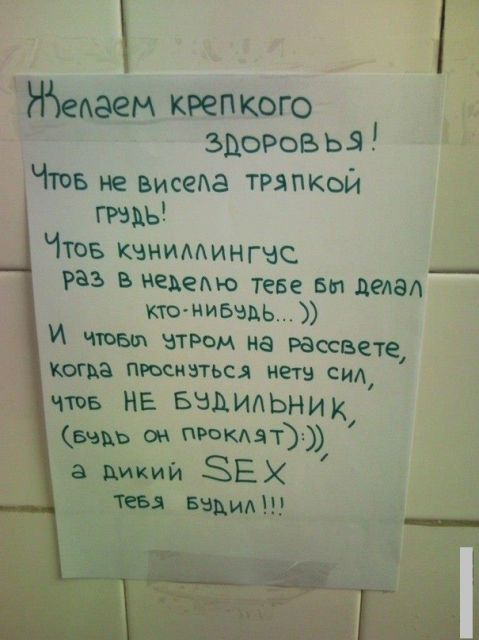 Желаем крепкого
здоровья!
Чтоб не висела тряпкой
грудь!
Чтоб куниллингус
раз в неделю тебе бы делал
кто-нибудь...))
И чтобы утром на рассвете,
когда проснуться нету сил,
чтоб НЕ БУДИЛЬНИК,
(будь он проклят):)),
а дикий SEX
тебя будил!!!